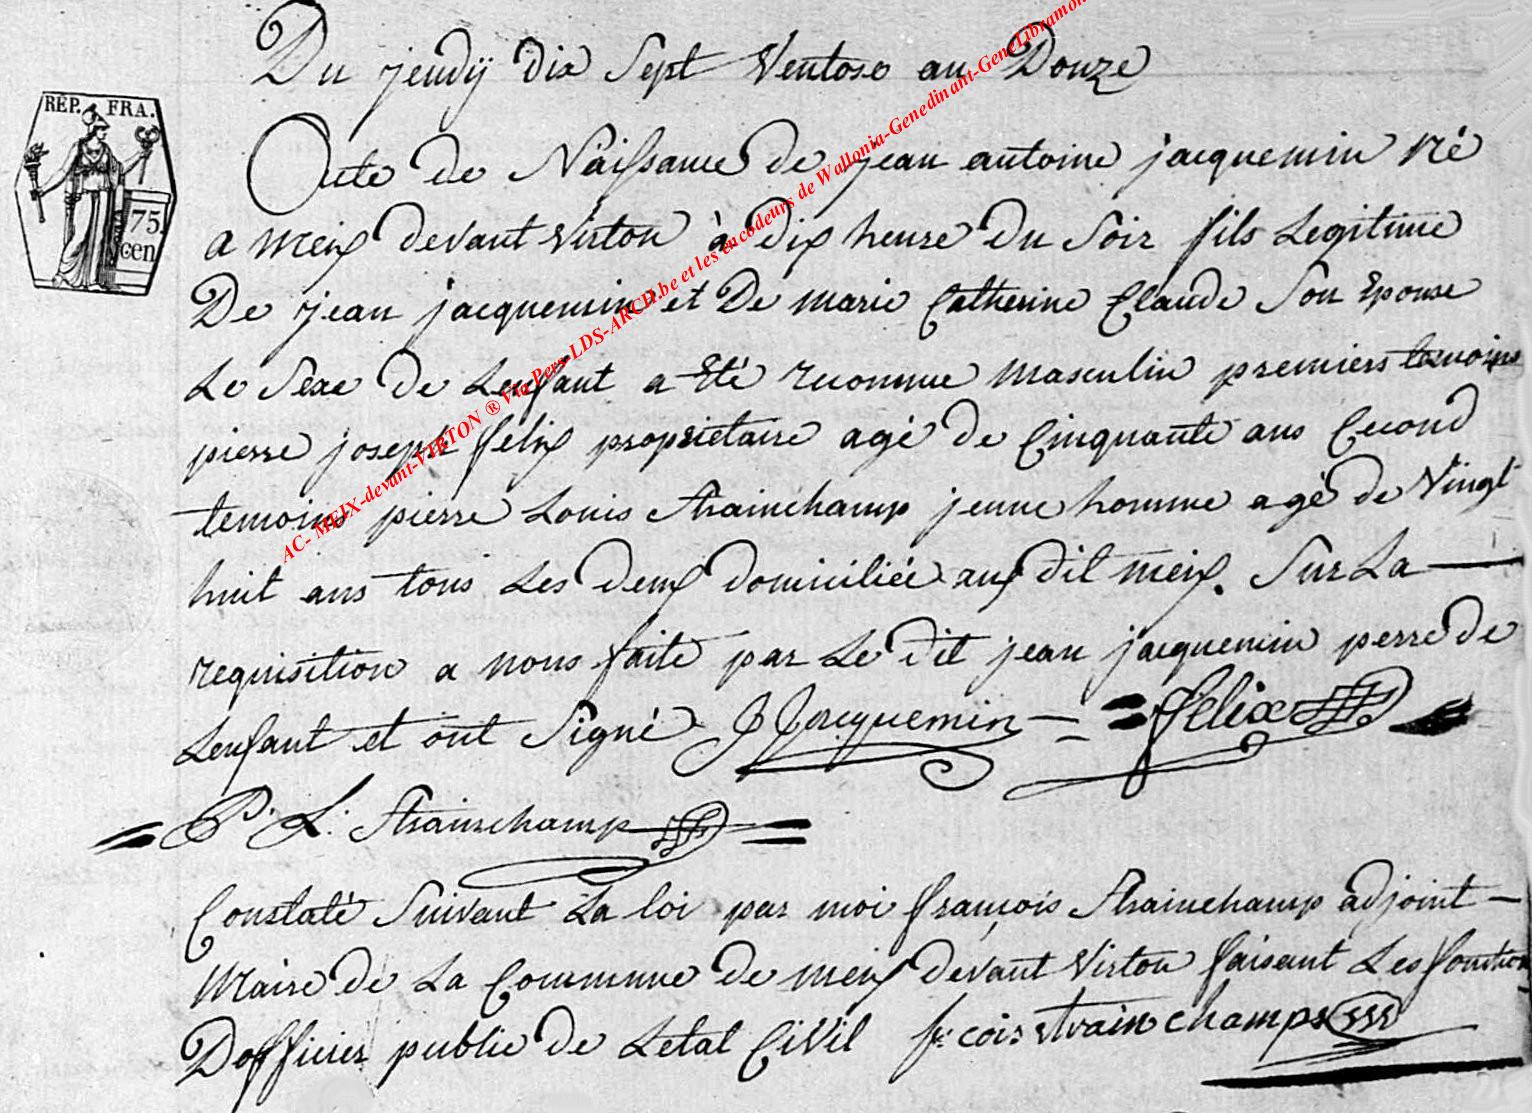 Du jeudij dix Sept Ventose an Douze
REP. FRA.
75 cen
Acte de Naissance de jean antoine jacquemin né
a meix devant virton à dix heure du Soir fils Legitime
De jean jacquemin et De marie Catherine Claude Son Epouse
Le Sexe de Lenfant a Eté reconnue masculin premiers temoins
pierre joseph felix proprietaire agé de Cinquante ans Cecond
temoins pierre Louis Strainchamp jeune homme agé de Vingt
huit ans tous Les deux domiciliée aux dit meix. Sur La
requisition a nous faite par Le dit jean jacquemin perre de
Lenfant et ont Signé J Jacquemin felix
P. L. Strainchamp
Constaté Suivant La loi par moi françois Strainchamp adjoint
Maire de La Commune de meix devant Virton faisant Les fonction
Dofficier publie de Letat Civil fr: cois strainchamps
AC- MEIX-devant-VIRTON ® Via Pers-LDS-ARCH.be et les encodeurs de Wallonia-Genedinant-GeneLibramon